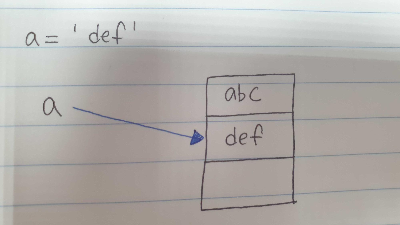 a = 'def'
abc
a
def